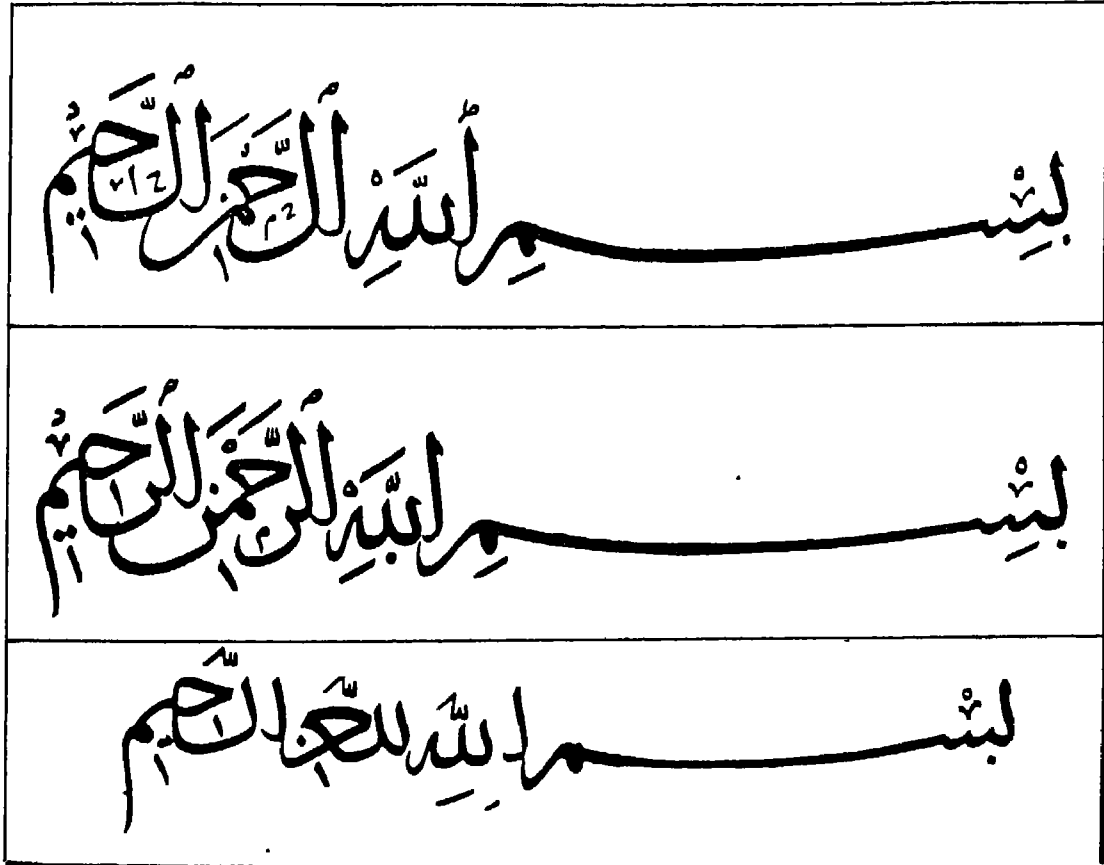 بِسْمِ ٱللَّهِ ٱلرَّحْمَٰنِ ٱلرَّحِيمِ
بِسْمِ ٱللَّهِ ٱلرَّحْمَٰنِ ٱلرَّحِيمِ
بِسْمِ ٱللَّهِ ٱلرَّحْمَٰنِ ٱلرَّحِيمِ